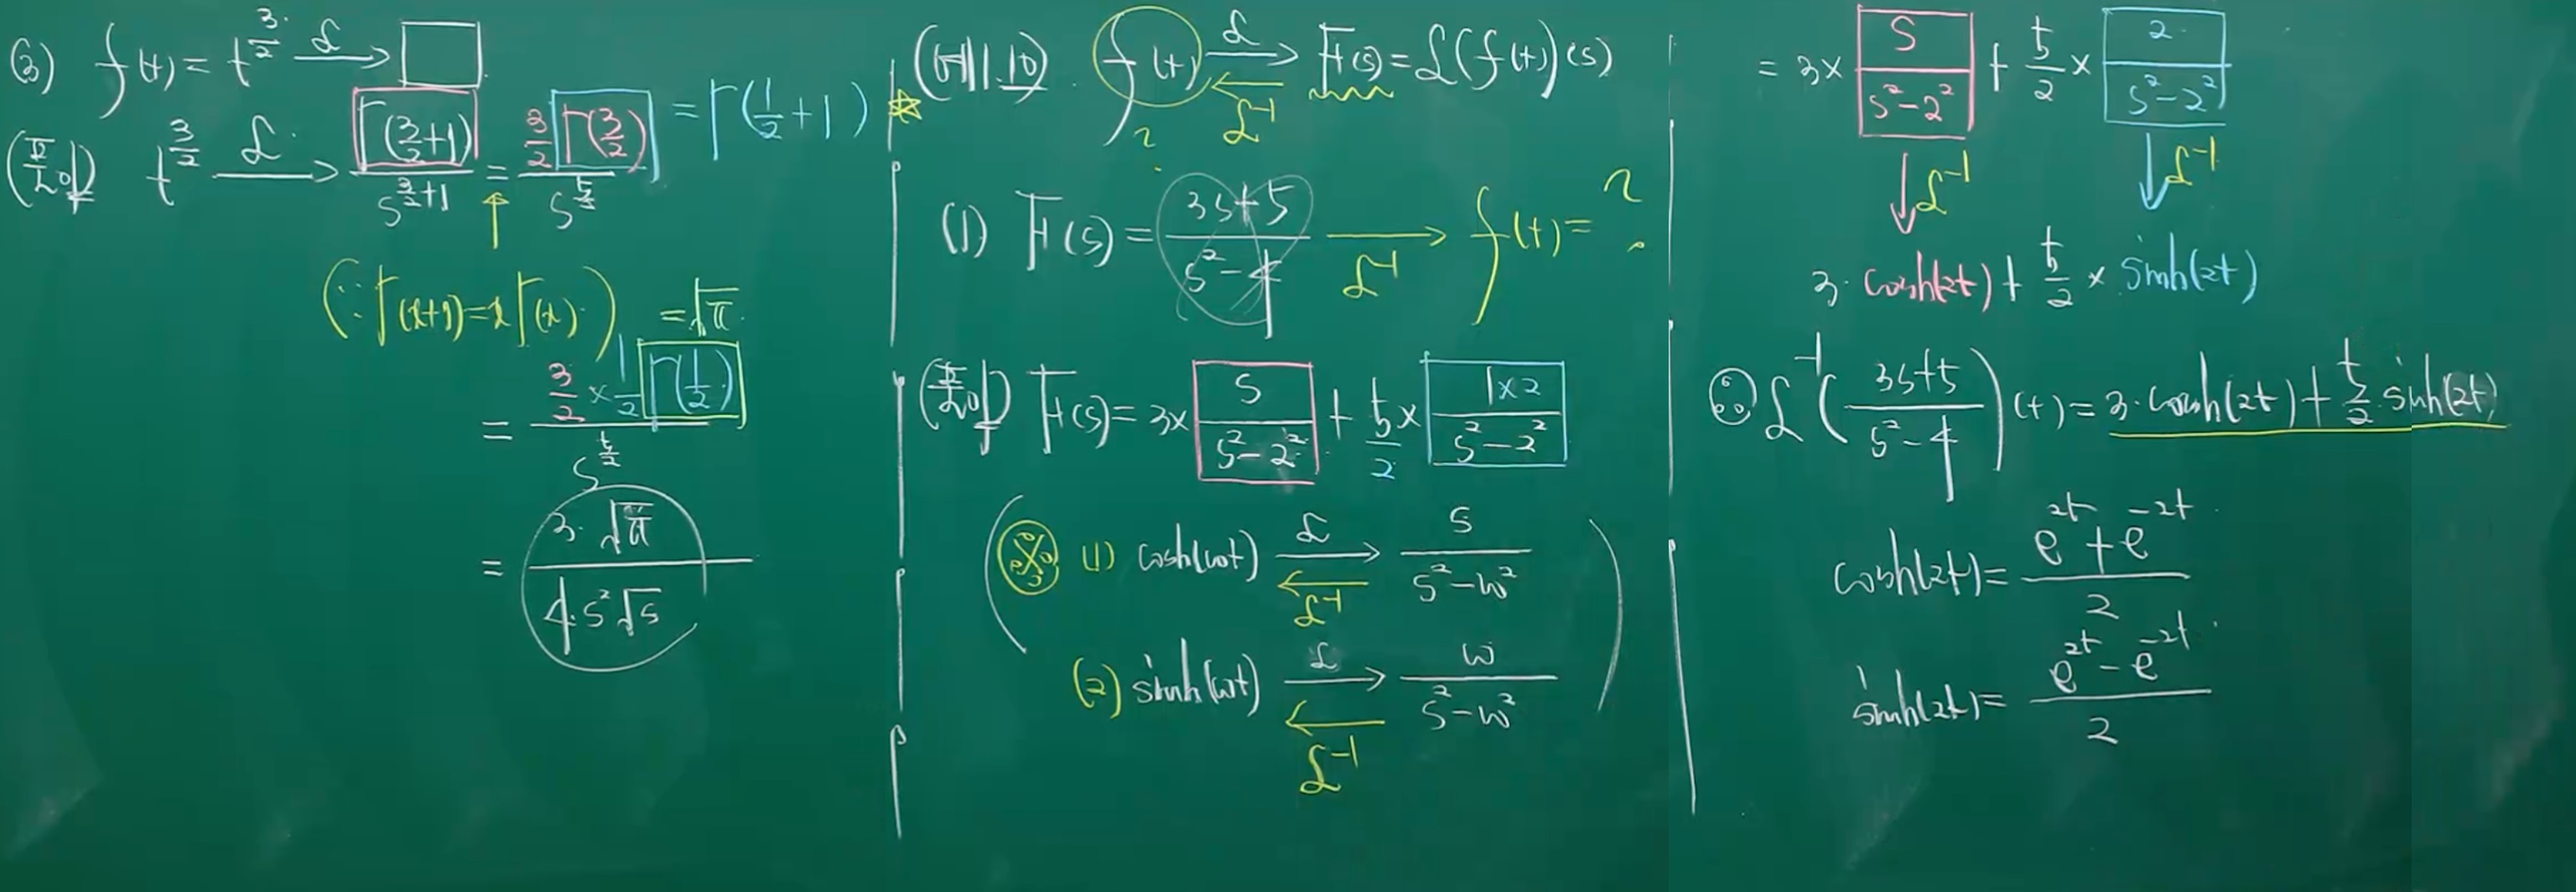 (3) f(t) = t^{3/2} →^{ℒ} □
(풀이) t^{3/2} →^{ℒ} Γ(3/2+1) / s^{3/2+1} = (3/2)Γ(3/2) / s^{5/2} = Γ(1/2+1)
(∵ Γ(x+1) = xΓ(x))
= √π
= (3/2 × 1/2 Γ(1/2)) / s^{5/2}
= 3·√π / (4·s²√s)
☆ (예11.10) f(t) →^{ℒ} F(s) = ℒ(f(t))(s)
? ← ℒ⁻¹
(1) F(s) = (3s+5)/(s²-4) →_{ℒ⁻¹} f(t) = ?
(풀이) F(s) = 3× s/(s²-2²) + 5/2 × (1×2)/(s²-2²)
(1) cosh(ωt) →^{ℒ} s/(s²-ω²)
← ℒ⁻¹
(2) sinh(ωt) →^{ℒ} ω/(s²-ω²)
← ℒ⁻¹
= 3× s/(s²-2²) + 5/2 × 2/(s²-2²)
↓ ℒ⁻¹ ↓ ℒ⁻¹
3·cosh(2t) + 5/2 × sinh(2t)
∴ ℒ⁻¹((3s+5)/(s²-4))(t) = 3·cosh(2t) + 5/2·sinh(2t)
cosh(2t) = (e^{2t} + e^{-2t})/2
sinh(2t) = (e^{2t} - e^{-2t})/2